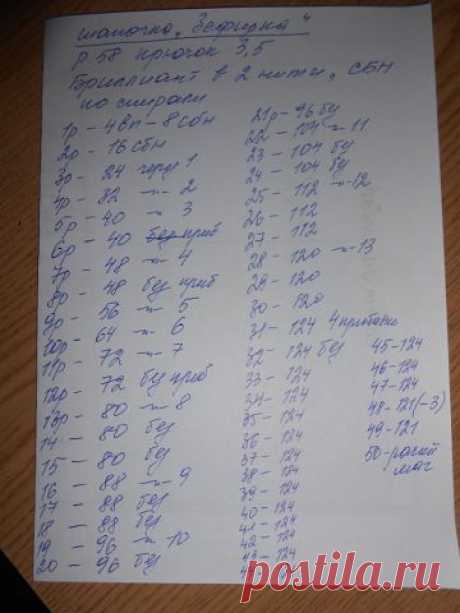 шапочка „Зефирка"
р 58 крючок 3,5
Бриллиант в 2 нити, СБН
по спирали
1р - 4вп - 8 сбн
2р - 16 сбн
3р - 24 через 1
4р - 32 -"- 2
5р - 40 -"- 3
6р - 40 без приб
7р - 48 -"- 4
8р - 48 без приб
9р - 56 -"- 5
10р - 64 -"- 6
11р - 72 -"- 7
12р - 72 без приб
13р - 80 -"- 8
14 - 80 без
15 - 80 без
16 - 88 -"- 9
17 - 88 без
18 - 88 без
19 - 96 -"- 10
20 - 96 без
21р - 96 без
22 - 104 -"- 11
23 - 104 без
24 - 104 без
25 - 112 -"- 12
26 - 112
27 - 112
28 - 120 -"- 13
29 - 120
30 - 120
31 - 124 4 прибавки
32 - 124 без
33 - 124
34 - 124
35 - 124
36 - 124
37 - 124
38 - 124
39 - 124
40 - 124
41 - 124
42 - 124
43 - 124
124
45 - 124
46 - 124
47 - 124
48 - 121 (-3)
49 - 121
50 - рачий
шаг
postila.ru